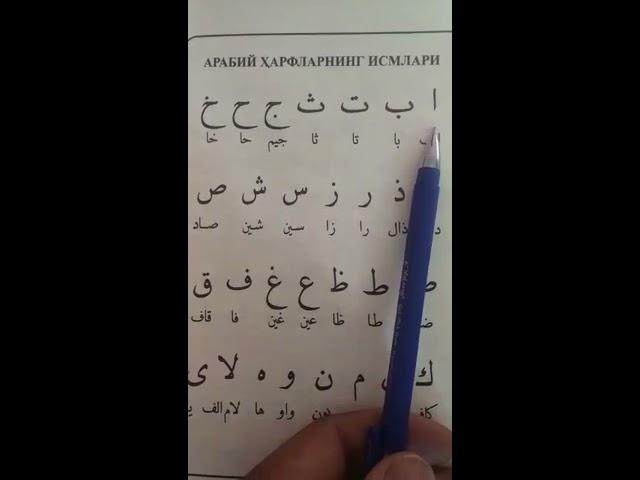 АРАБИЙ ҲАРФЛАРНИНГ ИСМЛАРИ
ا ب ت ث ج ح خ
با تا ثا جيم حا خا
ذ ر ز س ش ص
ذال را زا سين شين صاد
ط ظ ع غ ف ق
طا ظا عين غين فا قاف
ك م ن و ه لا ى
كاف نون واو ها لام الف